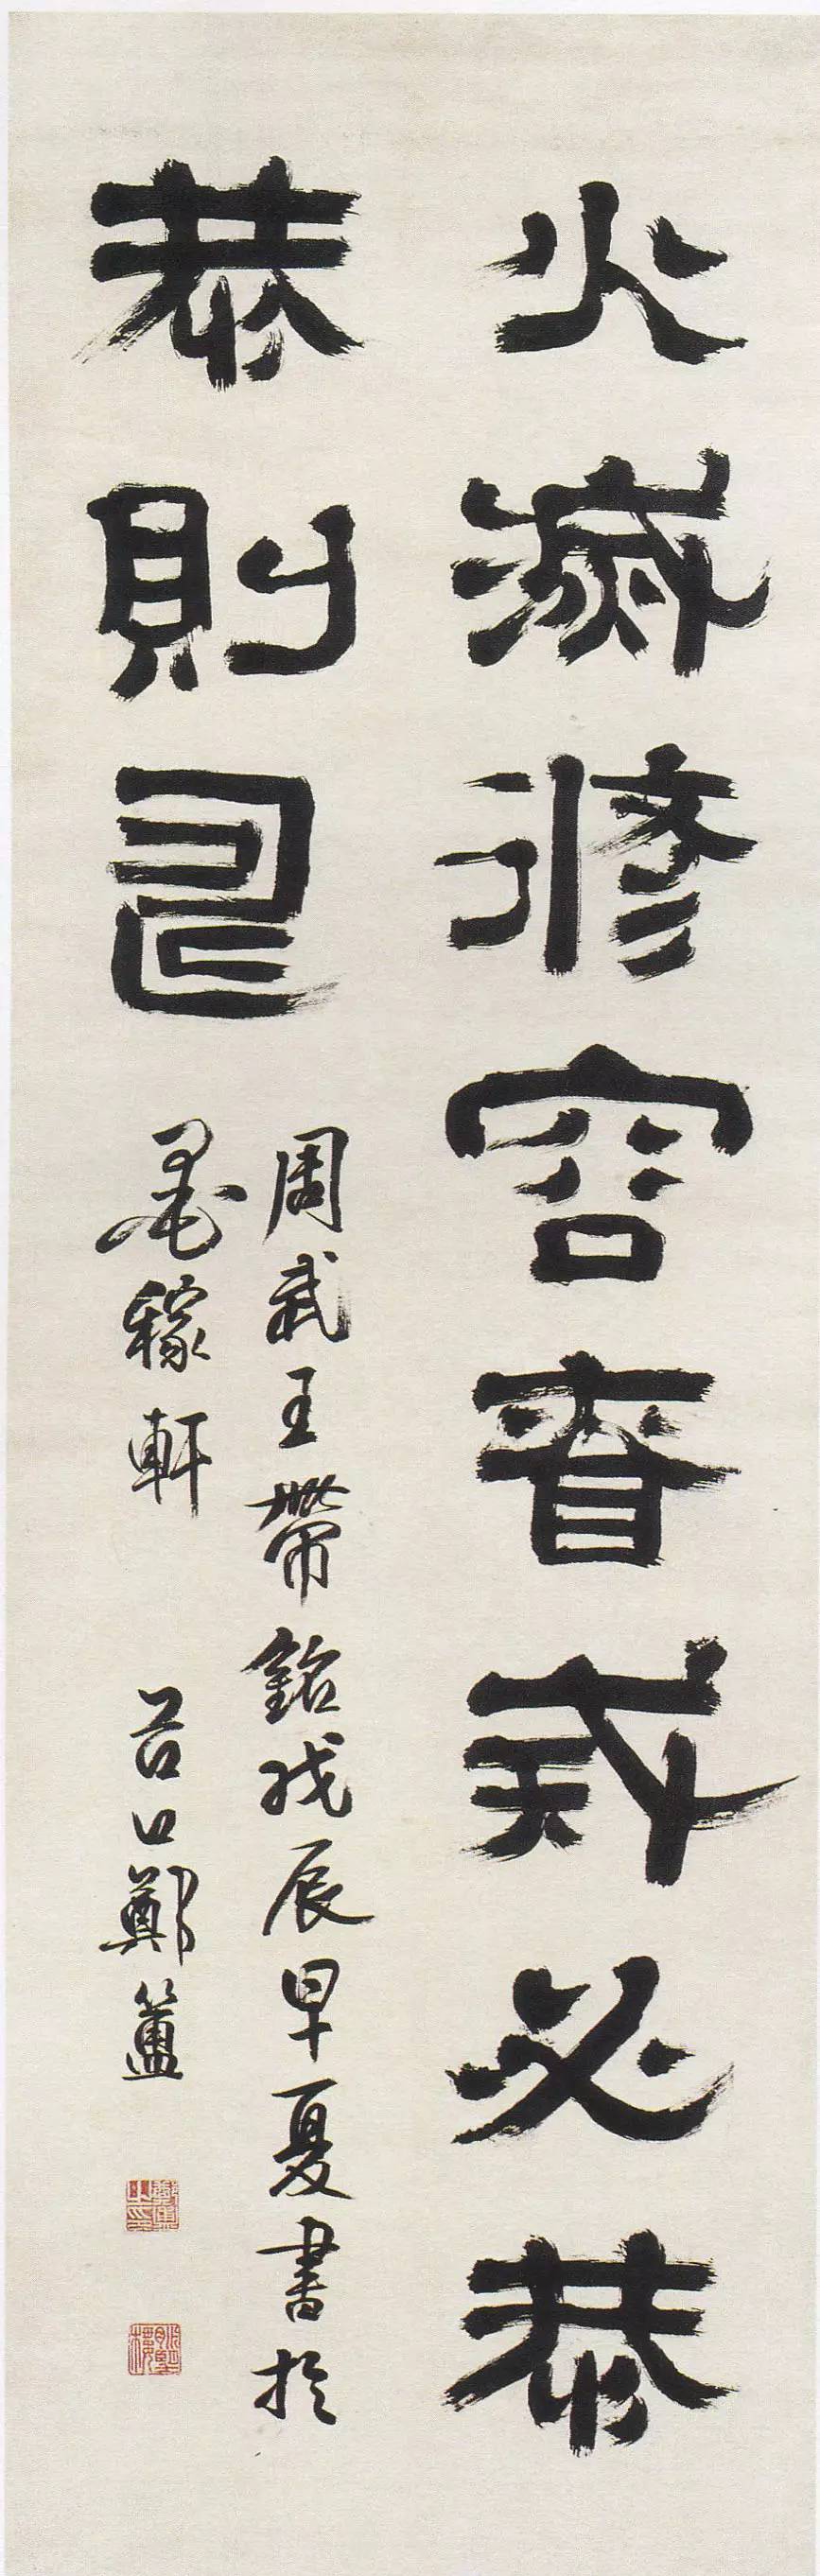 火滅脩容眘戒必恭
恭則壽
周武王帶銘戊辰早夏書於
墨稼軒 谷口鄭簠